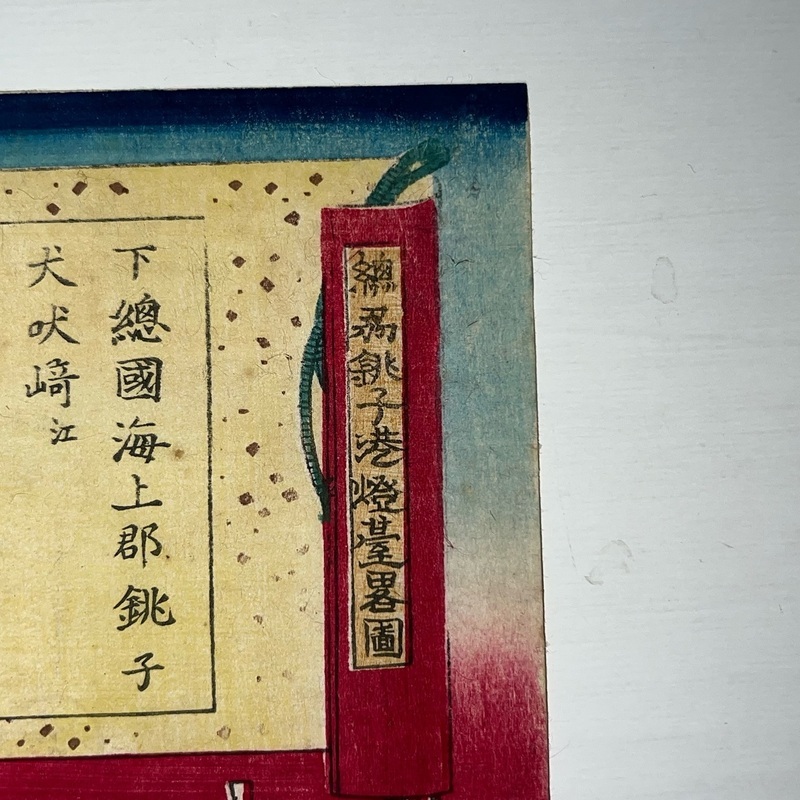 總刕銚子港燈臺畧圖
下總國海上郡銚子
犬吠﨑江